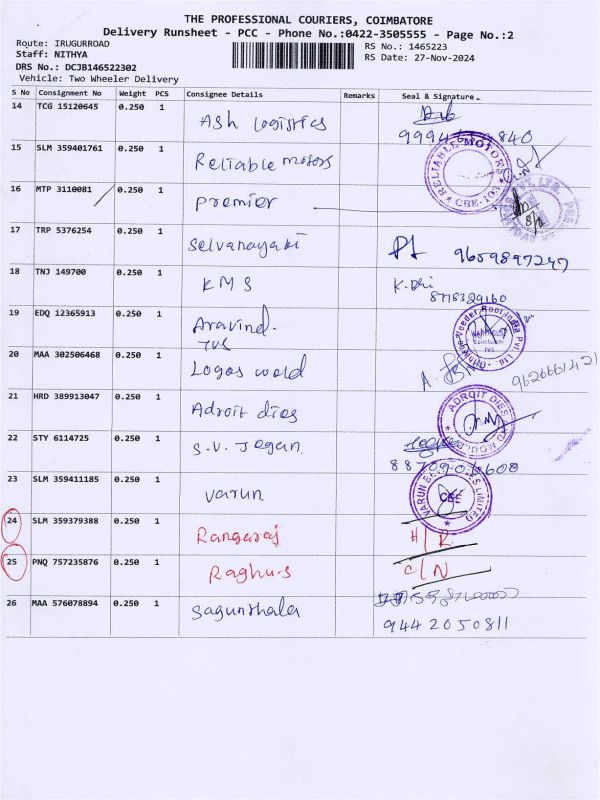 THE PROFESSIONAL COURIERS, COIMBATORE
Delivery Runsheet - PCC - Phone No.:0422-3505555 - Page No.:2
Route: IRUGURROAD
RS No.: 1465223
Staff: NITHYA
RS Date: 27-Nov-2024
DRS No.: DCJB146522302
Vehicle: Two Wheeler Delivery
S No Consignment No Weight PCS Consignee Details Remarks Seal & Signature
14 TCG 15120645 0.250 1 Ash logistics
15 SLM 359401761 0.250 1 Reliable motors RELIABLE MOTORS CBE-103
16 MTP 3110081 0.250 1 premier
17 TRP 5376254 0.250 1 selvanayaki 9659897247
18 TNJ 149700 0.250 1 KMS
8778329160
19 EDQ 12365913 0.250 1 Aravind.
TVS
20 MAA 302506468 0.250 1 Logos world
21 HRD 389913047 0.250 1 Adroit dies ADROIT DIES
22 STY 6114725 0.250 1 S.V. Jegan.
23 SLM 359411185 0.250 1 varun CBE
24 SLM 359379388 0.250 1 Rangaraj H/R
25 PNQ 757235876 0.250 1 Raghu-s C/N
26 MAA 576078894 0.250 1 sagunthala
9442050811